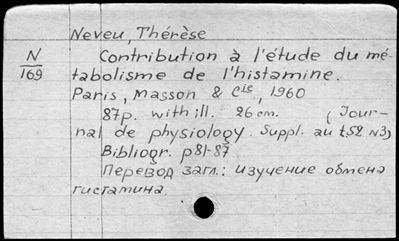 Neveu, Thérèse
N
169
Contribution à l'étude du mé-
tabolisme de l'histamine.
Paris, Masson & Cie, 1960
87p. with ill. 26cm. (Jour-
nal de physiology. Suppl. au t.52 N3)
Bibliogr. p81-87
Перевод загл.: изучение обмена
гистамина.